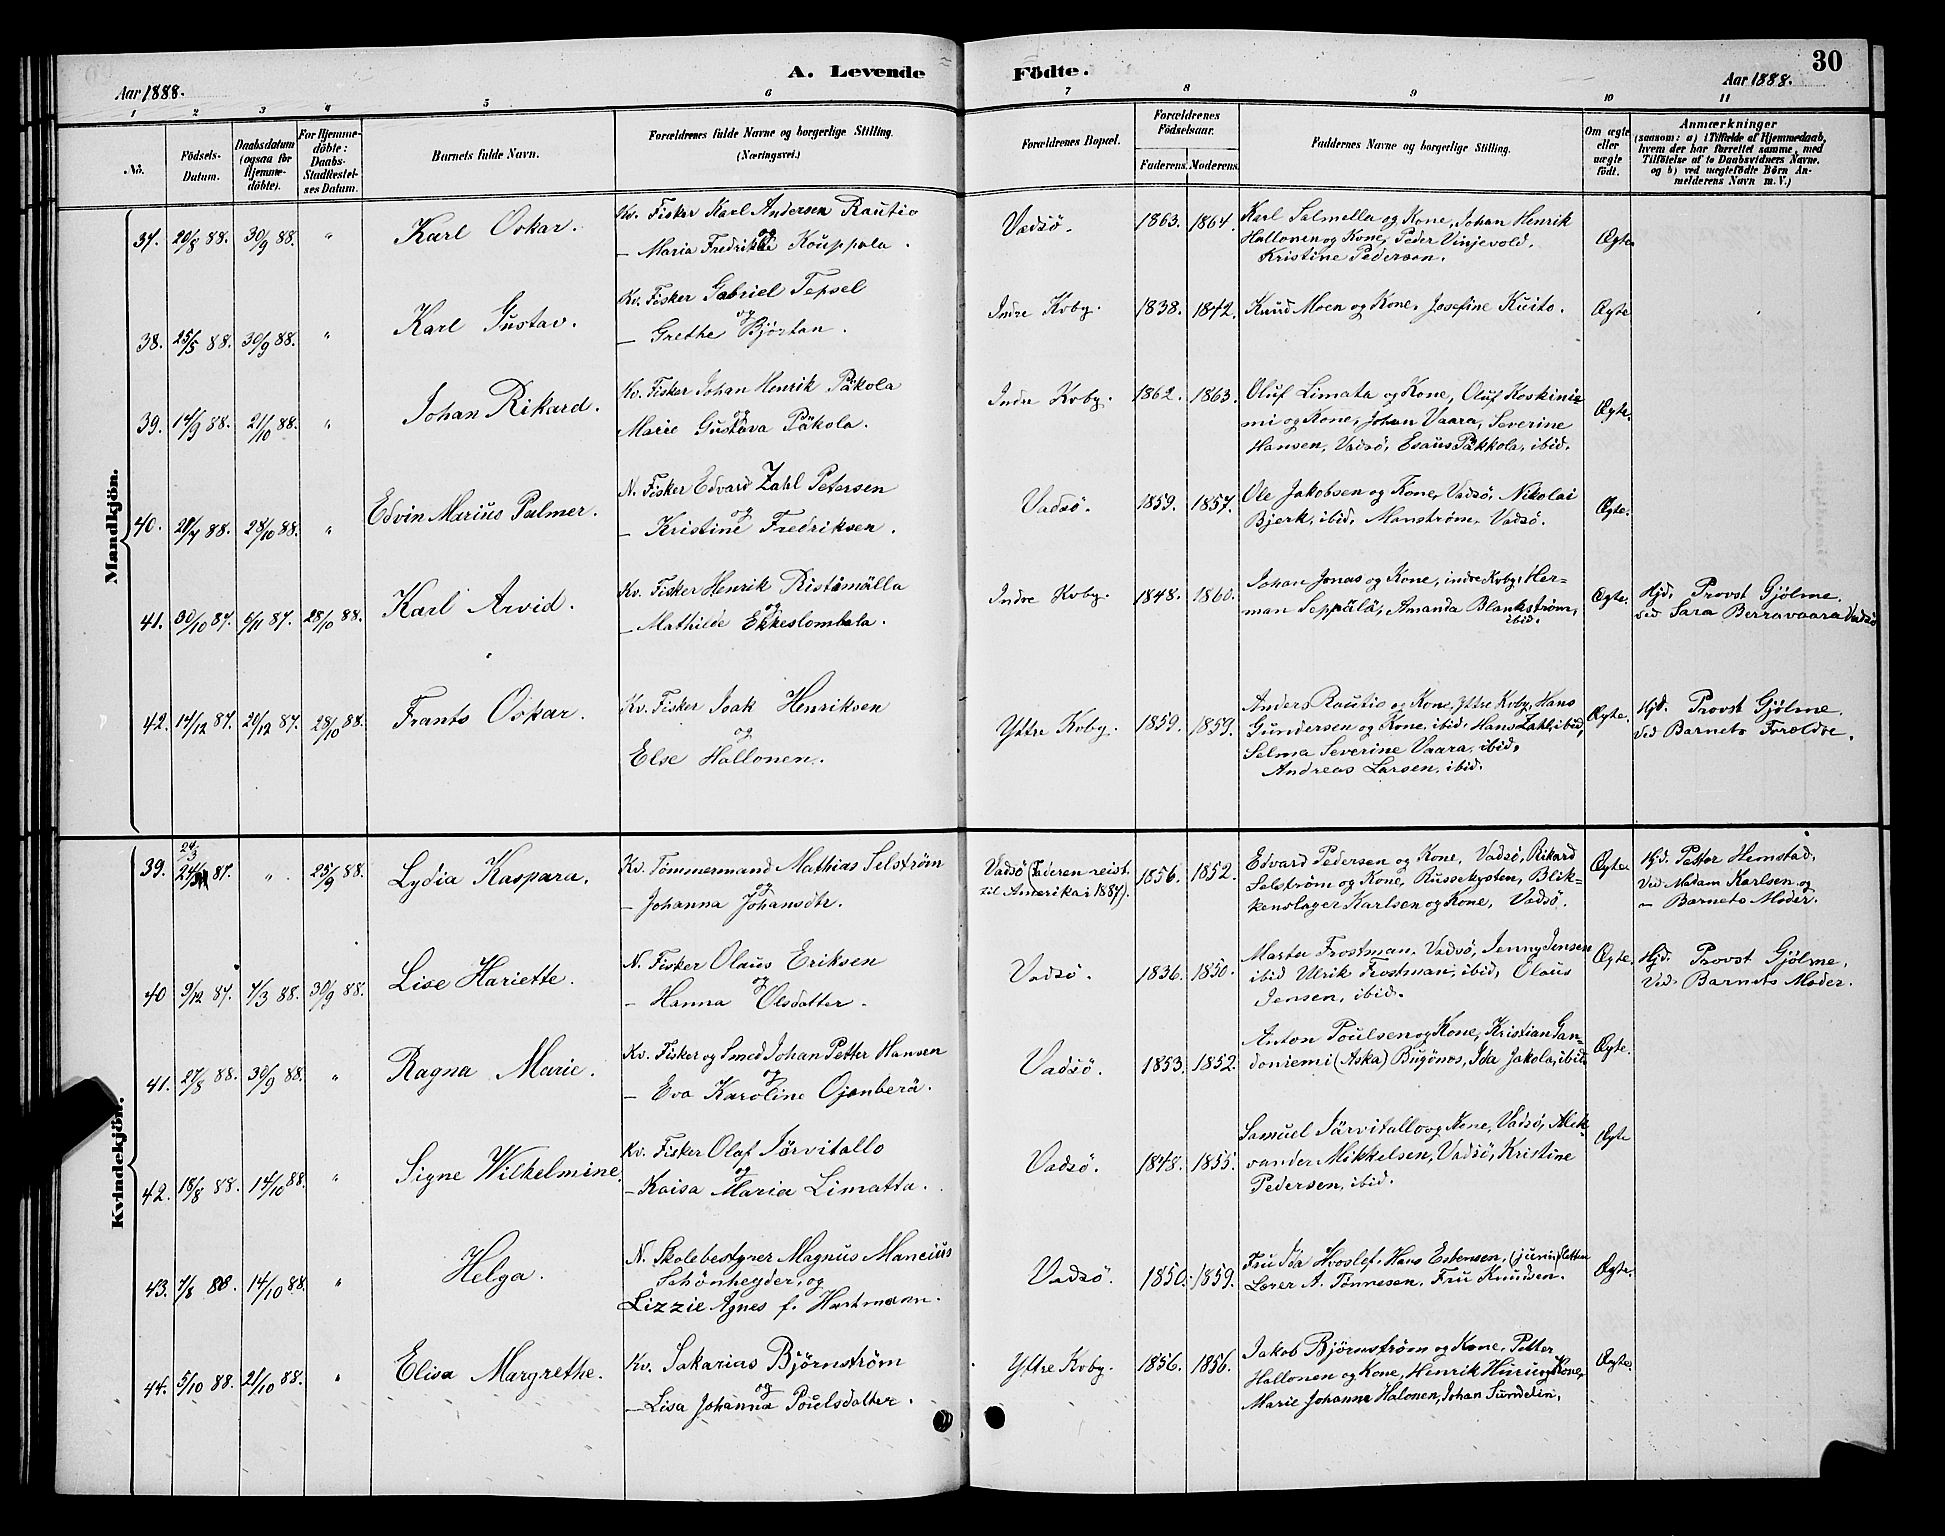 A. Levende Födte.
30
Aar 1888.
Aar 1888.
1 2 3 4 5 6 7 8 9 10 11
No.
Födsels-Datum.
Daabsdatum (ogsaa for Hjemmedöbte).
For Hjemmedöbte: Daabs-Stadfestelses Datum.
Barnets fulde Navn.
Forældrenes fulde Navne og borgerlige Stilling.
(Næringsvei.)
Forældrenes Bopæl.
Forældrenes Födselsaar.
Faderens. Moderens.
Faddernes Navne og borgerlige Stilling.
Om ægte eller uægte födt.
Anmærkninger
(saasom: a) i Tilfælde af Hjemmedaab, hvem der har forrettet samme, med Tilföielse af to Daabsvidners Navne. og b) ved uægtefödte Börn Anmelderens Navn m. V.)
Mandkjön.
37. 20/8 88. 30/9 88. " Karl Oskar.
Kv. Fisker Karl Andersen Rautio
og
— Maria Fredrikke Kouppala.
Vadsö. 1863. 1864.
Karl Salmella og Kone, Johan Henrik
Hallonen og Kone, Peder Vinjevold,
Kristine Pedersen.
Ægte
38. 25/5 88. 30/9 88. " Karl Gustav.
Kv. Fisker Gabriel Tepsel
og
— Grethe Björtan.
Indre Kvby. 1838. 1842.
Knud Moen og Kone, Josefine Kuito.
Ægte
39. 14/9 88. 21/10 88. " Johan Rikard.
Kv. Fisker Johan Henrik Päkola
og
Marie Gustava Päkola.
Indre Kvby. 1862. 1863.
Oluf Limata og Kone, Oluf Koskinie-
mi og Kone, Johan Vaara, Severine
Hansen, Vadsö, Esaus Päkkola, ibid.
Ægte.
40. 20/7 88. 28/10 88. " Edvin Marius Palmer.
N. Fisker Edvard Zahl Petersen
og
— Kristine Fredriksen.
Vadsö. 1859. 1857.
Ole Jakobsen og Kone, Vadsö, Nikolai
Bjerk, ibid. Manström, Vadsö.
Ægte.
41. 30/10 87. 6/11 87. 28/10 88. Karl Arvid.
Kv. Fisker Henrik Ristimälla
og
— Mathilde Ekkeslombala.
Indre Kvby. 1848. 1860.
Johan Jonas og Kone, indre Kvby, Her-
man Seppälä, Amanda Blankström,
ibid.
Ægte.
Hjd. Provst Gjölme.
ved Sara Berravaara Vadsö
42. 14/12 87. 20/12 87. 28/10 88. Frants Oskar.
Kv. Fisker Isak Henriksen
og
Else Hallonen.
Yttre Kvby. 1859. 1853.
Anders Rautio og Kone, Yttre Kvby, Hans
Gundersen og Kone, ibid. Hans Zahl, ibid,
Selma Severine Vaara, ibid.
Andreas Larsen, ibid.
Ægte.
Hjd. Provst Gjölme.
Ved Barnets Forældre.
Kvindekjön.
24/3
39. 87. " 25/9 88. Lydia Kaspara.
Kv. Tömmermand Mathias Selström
og
— Johanna Johansdtr.
Vadsö (Faderen reist
til Amerika i 1887).
1856. 1852.
Edvard Pedersen og Kone, Vadsö, Rikard
Selström og Kone, Russekysten, Blik-
kenslager Karlsen og Kone, Vadsö.
Ægte
Hjd. Petter Hemstad,
Ved Madam Karlsen og
— Barnets Moder.
40 9/12 87. 7/3 88. 30/9 88. Lise Hariette.
N. Fisker Olaus Eriksen
og
— Hanna Olsdatter.
Vadsö. 1836. 1850.
Marta Frostman, Vadsö, Jenny Jensen
ibid Ulrik Frostman, ibid, Olaus
Jensen, ibid.
Ægte.
Hjd. Provst Gjölme,
Ved. Barnets Moder.
41. 27/8 88. 30/9 88. " Ragna Marie.
Kv. Fisker og Smed Johan Petter Hansen
og
— Eva Karoline Ojanberä.
Vadsö. 1853. 1852.
Anton Poulsen og Kone, Kristian San-
doniemi (Aska) Bugönæs, Ida Jakola, ibid
Ægte.
42. 18/8 88. 14/10 88. " Signe Wilhelmine.
Kv. Fisker Olaf Järvitallo
og
— Kaisa Maria Limatta.
Vadsö. 1848. 1855.
Samuel Järvitallo og Kone, Vadsö, Alek-
vander Mikkelsen, Vadsö, Kristine
Pedersen, ibid.
Ægte
43. 7/8 88. 14/10 88. " Helga.
N. Skolebestyrer Magnus Mancius
Schönheyder, og
Lizzie Agnes f. Hartmann.
Vadsö. 1850. 1859.
Fru Ida Hvoslef, Hans Esbensen, (junior)
Lærer A. Tönnesen, Fru Knudsen.
Ægte.
44. 5/10 88. 21/10 88. " Elisa Margrethe.
Kv. Sakarias Björnström
og
— Lisa Johanna Poulsdatter.
Yttre Kvby. 1856. 1856.
Jakob Björnström og Kone, Petter
Hallonen og Kone, Henrik og Kone,
Marie Johanna Halonen, Johan Sundelin,
Ægte.